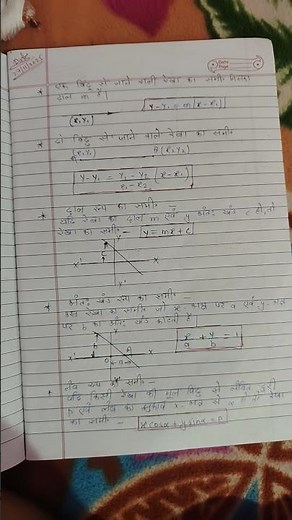 Date
Page
* एक बिंदु से जाने वाली रेखा का समी० जिसका
ढाल m है।
(x₁y₁) y-y₁ = m(x-x₁)
* दो बिंदु से जाने वाले रेखा का समी०
(x₁y₁) B (x₂y₂)
y-y₁ = y₁-y₂ / x₁-x₂ (x-x₁)
* ढाल रूप का समी० -
यदि रेखा का ढाल m एवं y अंतः खंड c हो, तो
रेखा का समी० - y = mx + c
x' x
* अंतः खंड रूप का समी० -
उस रेखा का समी० जो x अक्ष पर a एवं y-अक्ष
पर b का अंतः खंड काटती
x/a + y/b = 1
x' O A x
* लंब रूप का समी० -
यदि किसी रेखा की मूल बिंदु से लंबित दूरी
p एवं लंब का झुकाव x-अक्ष से α हो तो रेखा
का समी० - x cosα + y sinα = p